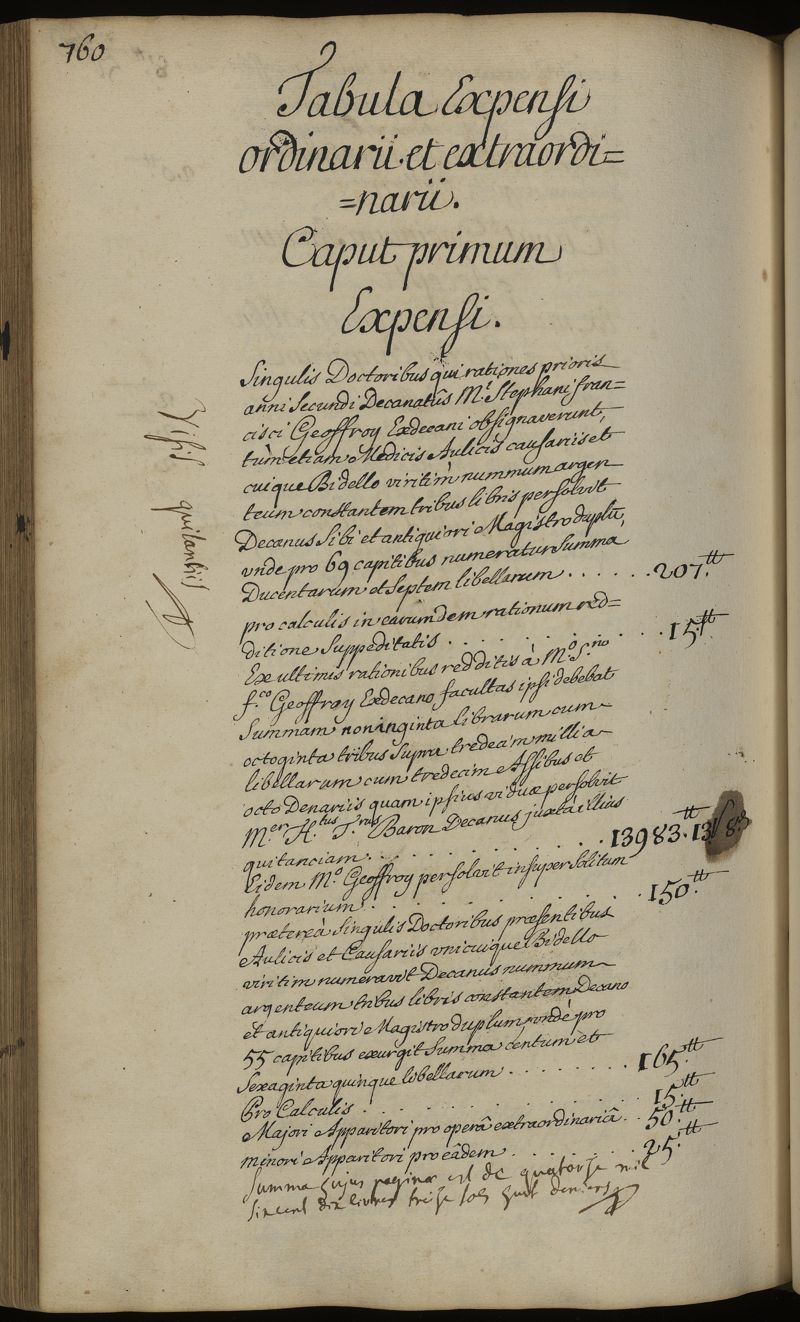 760
Tabula Expensi
ordinarii et extraordi=
=narii.
Caput primum
Expensi.
Singulis Doctoribus qui rationes prioris
anni secundi Decanatûs Mi. Stephani fran=
cisci Geoffroy Exdecani obsignaverunt,
tùm etiam Medicis Aulicis causariis et
cuique Bidello viritim nummum argen
teum constantem tribus libris persolvit
Decanus sibi et antiquiori Magistro duplū,
vnde pro 69 capitibus numeratur summa
Ducentarum et septem libellarum . . . . . . 207.tt
pro calculis in earumdem rationum red=
ditione suppeditatis . . . . . . . . . 15.tt
Ex ultimis rationibus redditis à Mo. S.no
f.co Geoffroy Exdecano facultas ipsi debebat
summam noninginta librarum cum
octoginta tribus supra tredecim millia
libellarum cum tredecim Assibus et
octo Denariis quam ipsius viduæ persolvit
M.er H.tus T.nus Baron Decanus juxta illius
quitanciam . . . . . . . . . . 13983.tt 13s 8d
Eidem Mo. Geoffroy persolvit insuper solitum
honorarium . . . . . . . . . . 150.tt
prætereà singulis Doctoribus præsentibus
Aulicis et Causariis vnicuique Bidello
viritim numeravit Decanus nummum
argenteum tribus libris constantem Decano
et antiquiori Magistro duplum, vndè pro
55 capitibus exurgit summa centum et
sexaginta quinque libellarum . . . . . . . . 165.tt
Pro Calculis . . . . . . . . . . 15.tt
Majori Apparitori pro operâ extraordinariâ . . 50.tt
minori Apparitori pro eâdem . . . . . . . 25.tt
Summa hujus paginæ est de quatorze mil
six cent dix livres treize sols huit deniers
Visis quitantiis